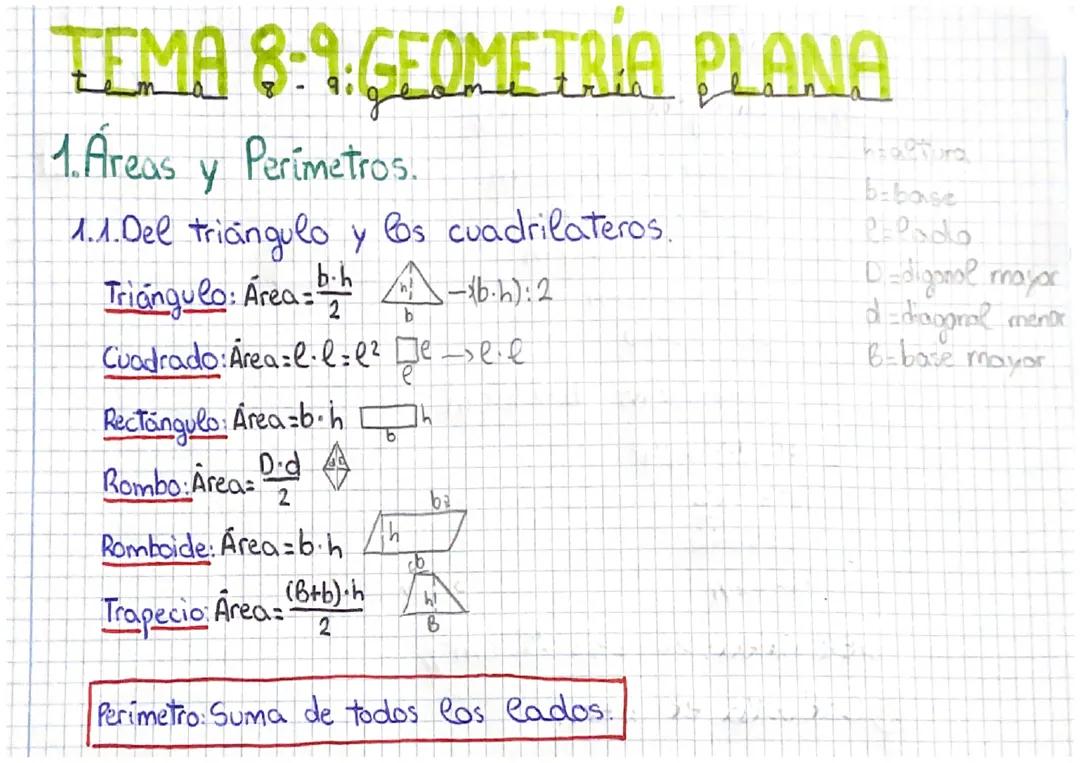 TEMA 8-9: GEOMETRÍA PLANA
tema 8-9: geometría plana
1. Áreas y Perímetros.
1.1. Del triángulo y los cuadrilateros.
Triángulo: Área = b·h/2 h b → (b·h):2
Cuadrado: Área = l·l = l² l l → l·l
Rectángulo: Área = b·h h b
Rombo: Área = D·d/2 d D
Romboide: Área = b·h h b
Trapecio: Área = (B+b)·h/2 b h B
Perímetro: Suma de todos los lados.
h=altura
b=base
l=lado
D=digonal mayor
d=diagonal menor
B=base mayor